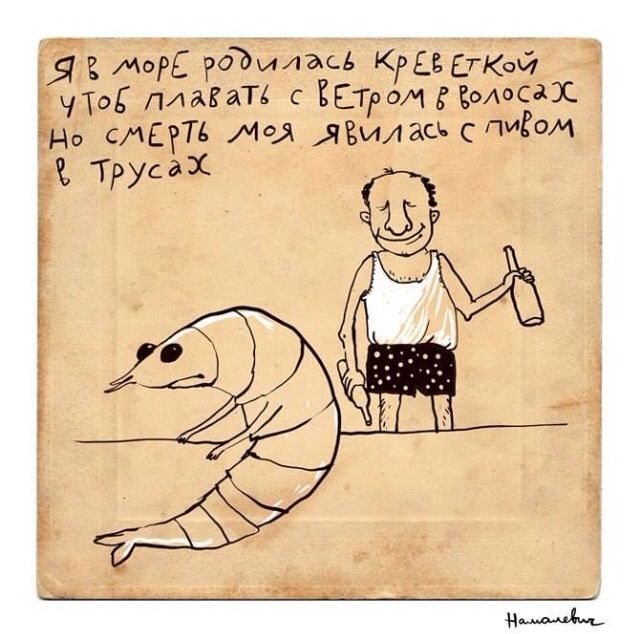 Я в море родилась креветкой
чтоб плавать с ветром в волосах
Но смерть моя явилась с пивом
в трусах
Намалевич